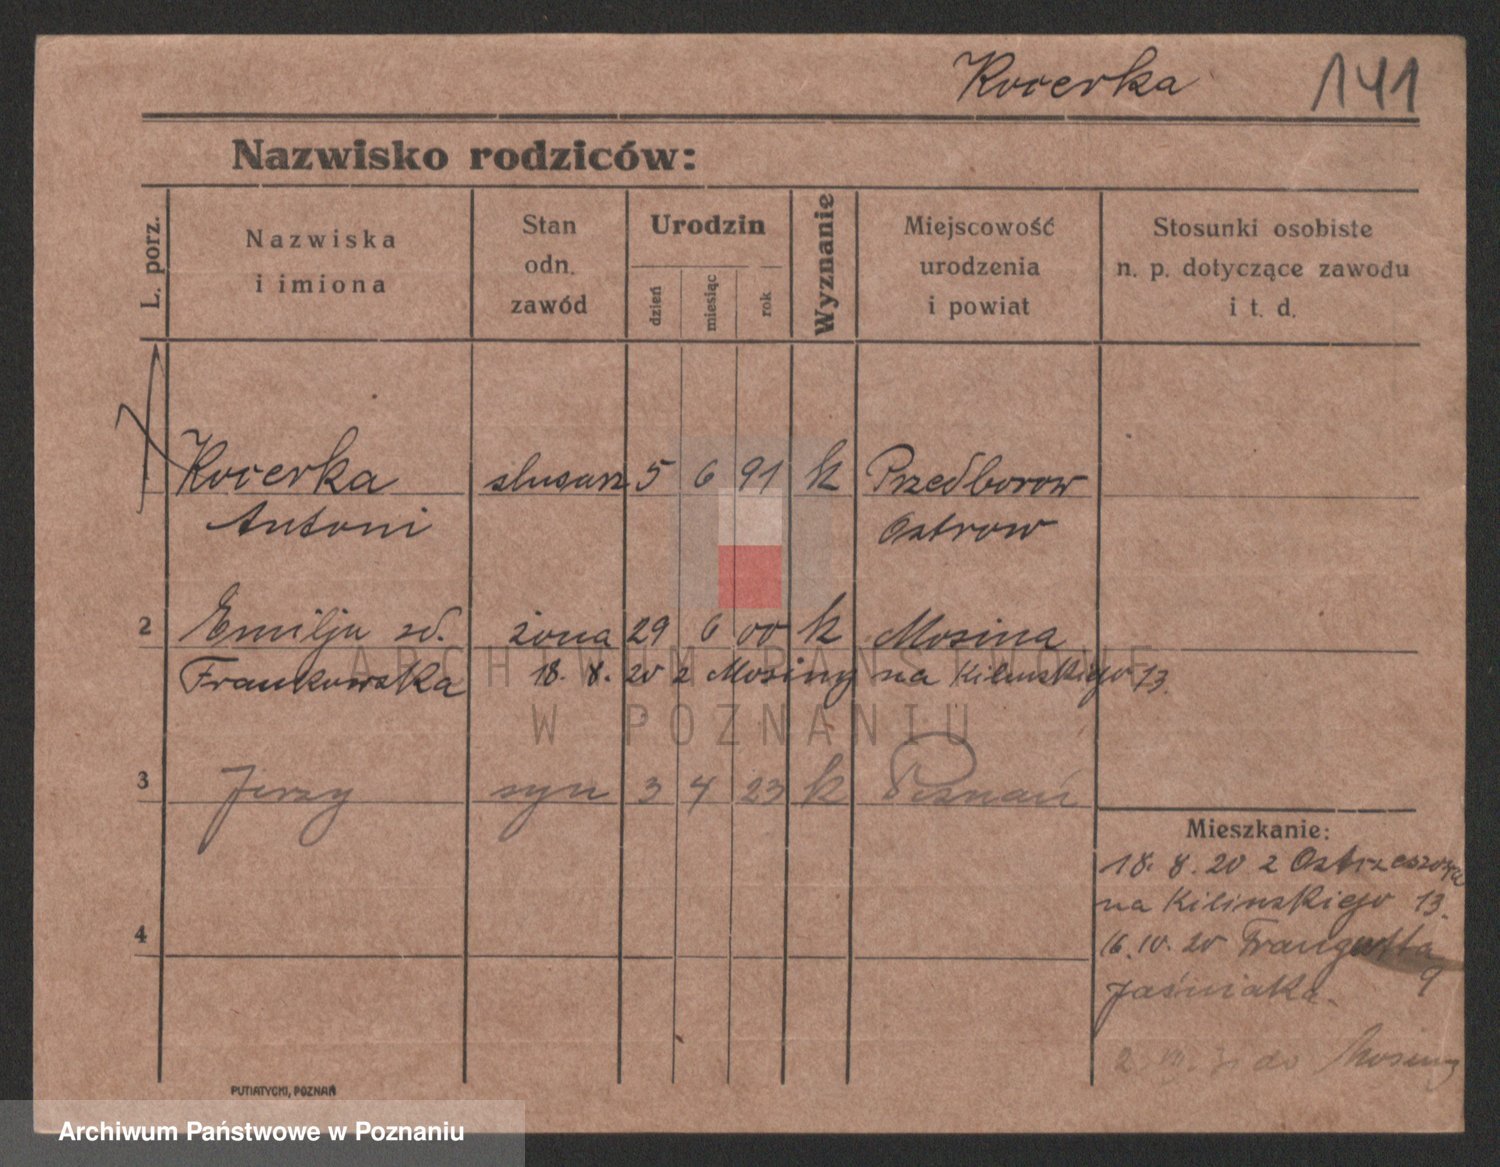 Kocerka 141
Nazwisko rodziców:
L. porz.
Nazwiska
i imiona
Stan
odn.
zawód
Urodzin
dzień
miesiąc
rok
Wyznanie
Miejscowość
urodzenia
i powiat
Stosunki osobiste
n. p. dotyczące zawodu
i t. d.
1 Kocerka ślusarz 5 6 91 k Przedborow
Antoni Ostrow
2 Emilja żona 29 6 00 k Mosina
Frankowska 18. 8. 20 z Mosiny na Kilinskiego 13.
3 Jerzy syn 3 4 23 k Poznań
Mieszkanie:
18. 8. 20 z
na Kilinskiego 13.
4
16. 10. 20 9
Jaśniaka.
do Mosiny
PUTIATYCKI, POZNAŃ
ARCHIWUM PAŃSTWOWE
W POZNANIU
Archiwum Państwowe w Poznaniu